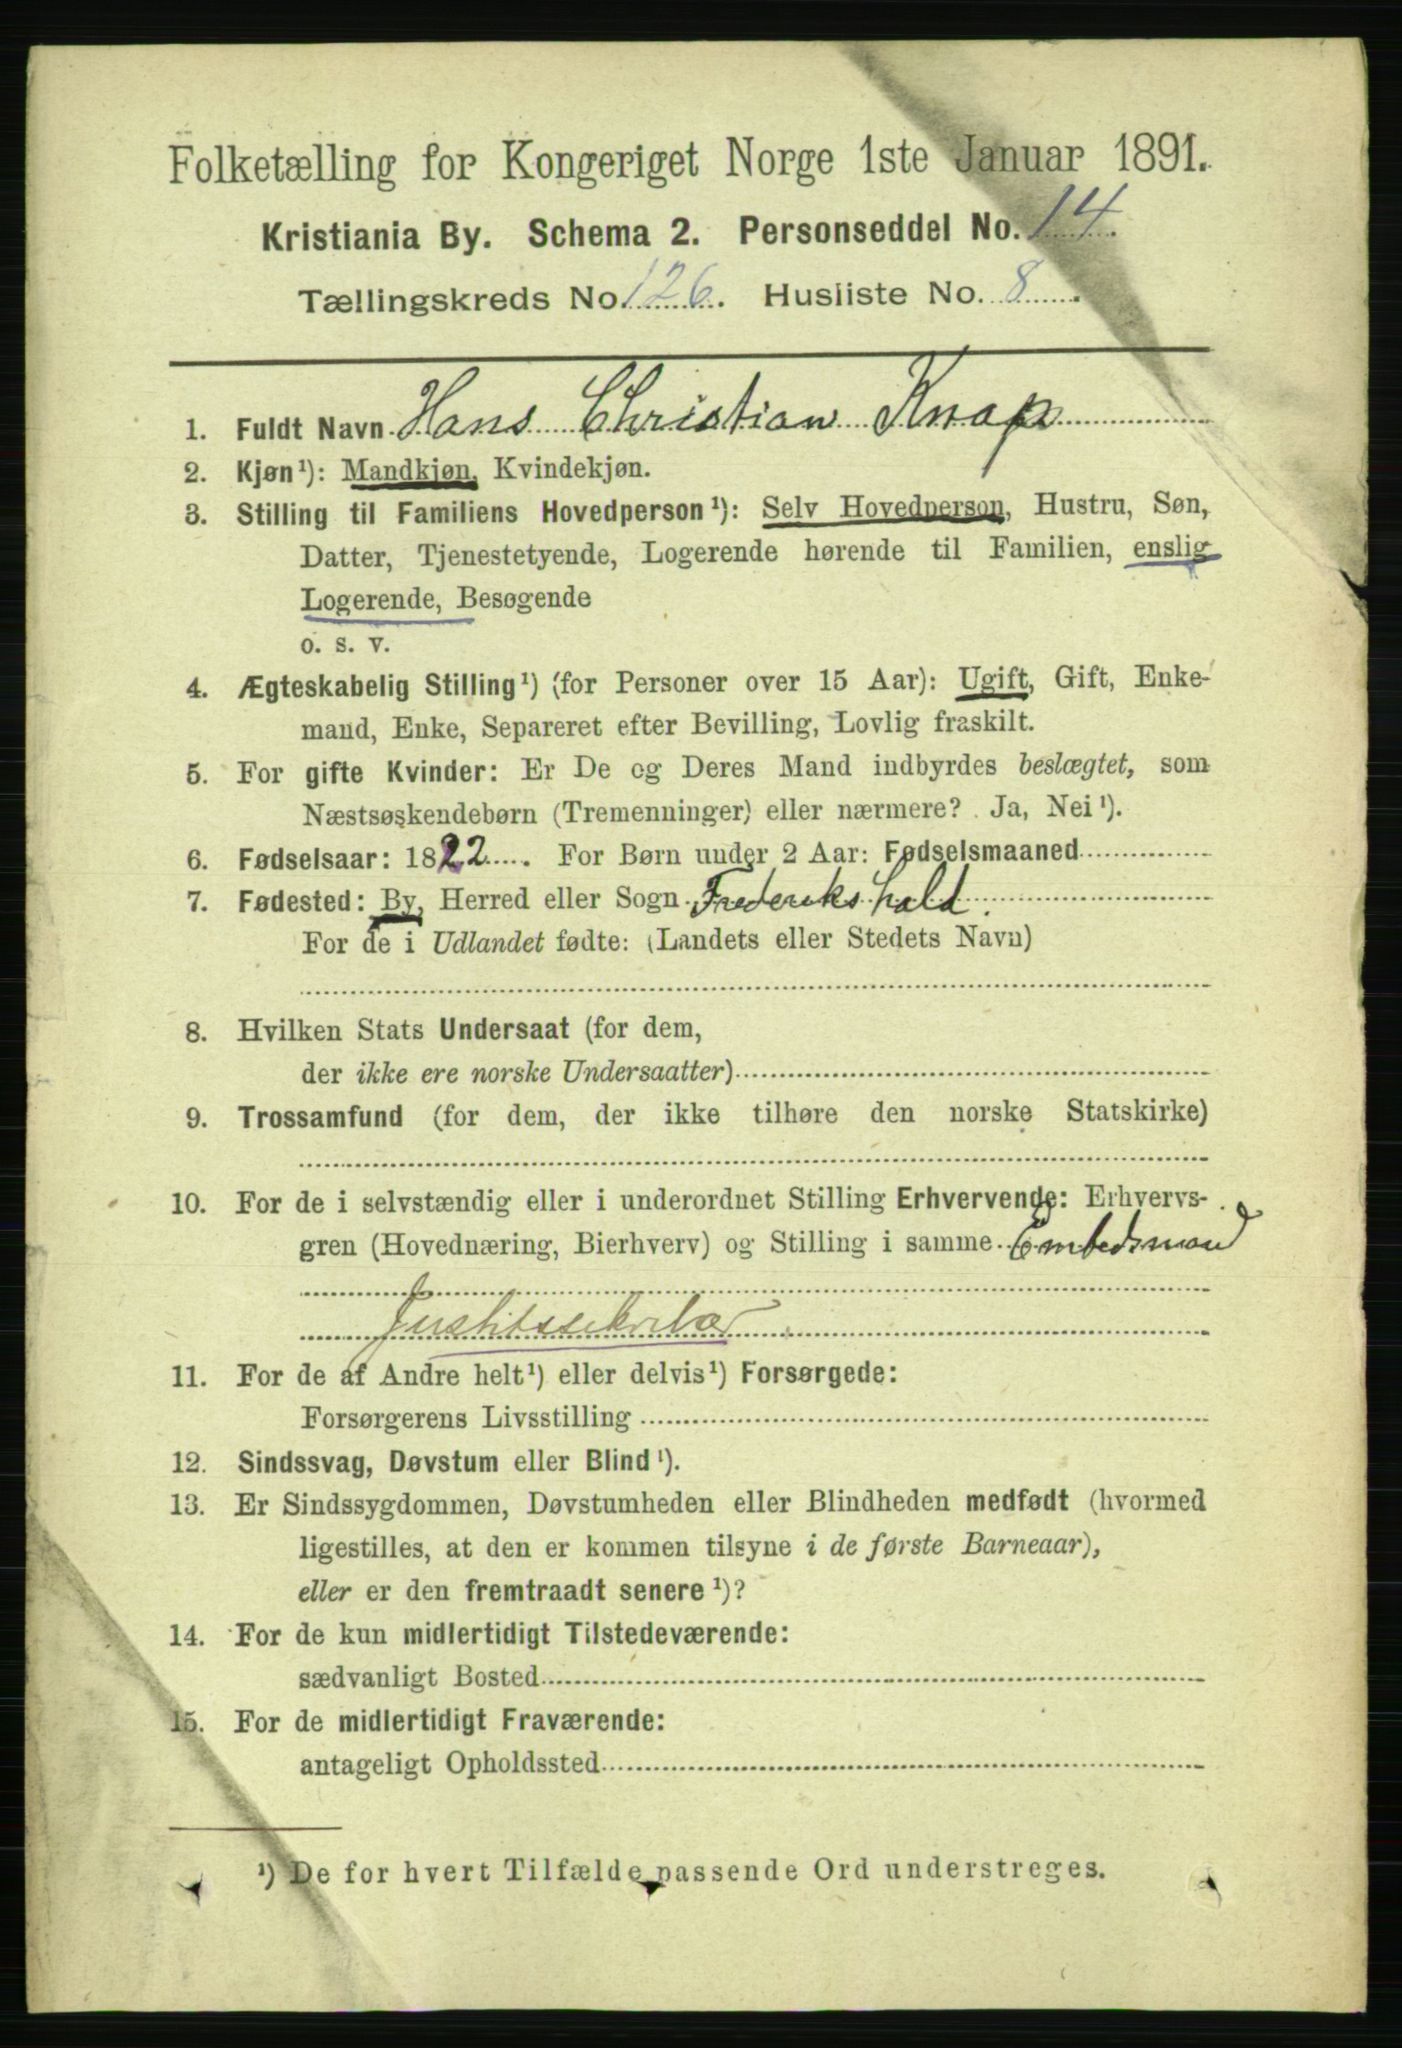 Folketælling for Kongeriget Norge 1ste Januar 1891.
Kristiania By. Schema 2. Personseddel No. 14.
Tællingskreds No. 126. Husliste No. 8.
1. Fuldt Navn Hans Christian Knap
2. Kjøn¹): Mandkjøn, Kvindekjøn.
3. Stilling til Familiens Hovedperson¹): Selv Hovedperson, Hustru, Søn,
Datter, Tjenestetyende, Logerende hørende til Familien, enslig
Logerende, Besøgende
o. s. v.
4. Ægteskabelig Stilling¹) (for Personer over 15 Aar): Ugift, Gift, Enke-
mand, Enke, Separeret efter Bevilling, Lovlig fraskilt.
5. For gifte Kvinder: Er De og Deres Mand indbyrdes beslægtet, som
Næstsøskendebørn (Tremenninger) eller nærmere? Ja, Nei¹).
6. Fødselsaar: 1822. For Børn under 2 Aar: Fødselsmaaned
7. Fødested: By, Herred eller Sogn Frederikshald.
For de i Udlandet fødte: (Landets eller Stedets Navn)
8. Hvilken Stats Undersaat (for dem,
der ikke ere norske Undersaatter)
9. Trossamfund (for dem, der ikke tilhøre den norske Statskirke)
10. For de i selvstændig eller i underordnet Stilling Erhvervende: Erhvervs-
gren (Hovednæring, Bierhverv) og Stilling i samme Embedsmand
Justitssekretær
11. For de af Andre helt¹) eller delvis¹) Forsørgede:
Forsørgerens Livsstilling
12. Sindssvag, Døvstum eller Blind¹).
13. Er Sindssygdommen, Døvstumheden eller Blindheden medfødt (hvormed
ligestilles, at den er kommen tilsyne i de første Barneaar),
eller er den fremtraadt senere¹)?
14. For de kun midlertidigt Tilstedeværende:
sædvanligt Bosted
15. For de midlertidigt Fraværende:
antageligt Opholdssted
¹) De for hvert Tilfælde passende Ord understreges.